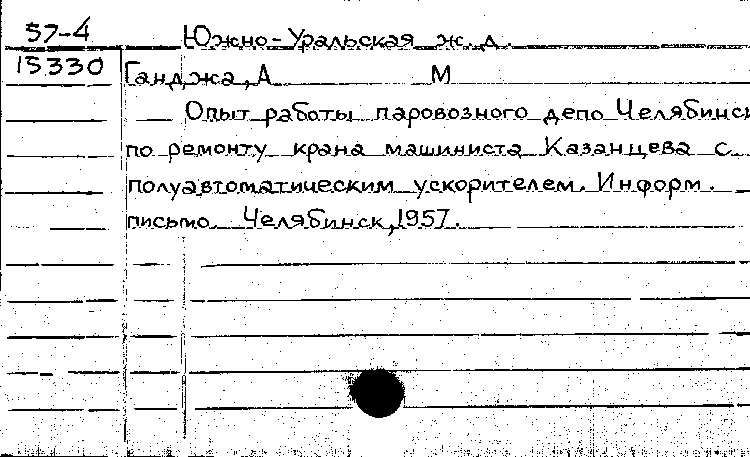 57-4 Южно-Уральская ж.д.
15330 Ганджа, А М
Опыт работы паровозного депо Челябинск
по ремонту крана машиниста Казанцева с
полуавтоматическим ускорителем. Информ.
письмо. Челябинск, 1957.